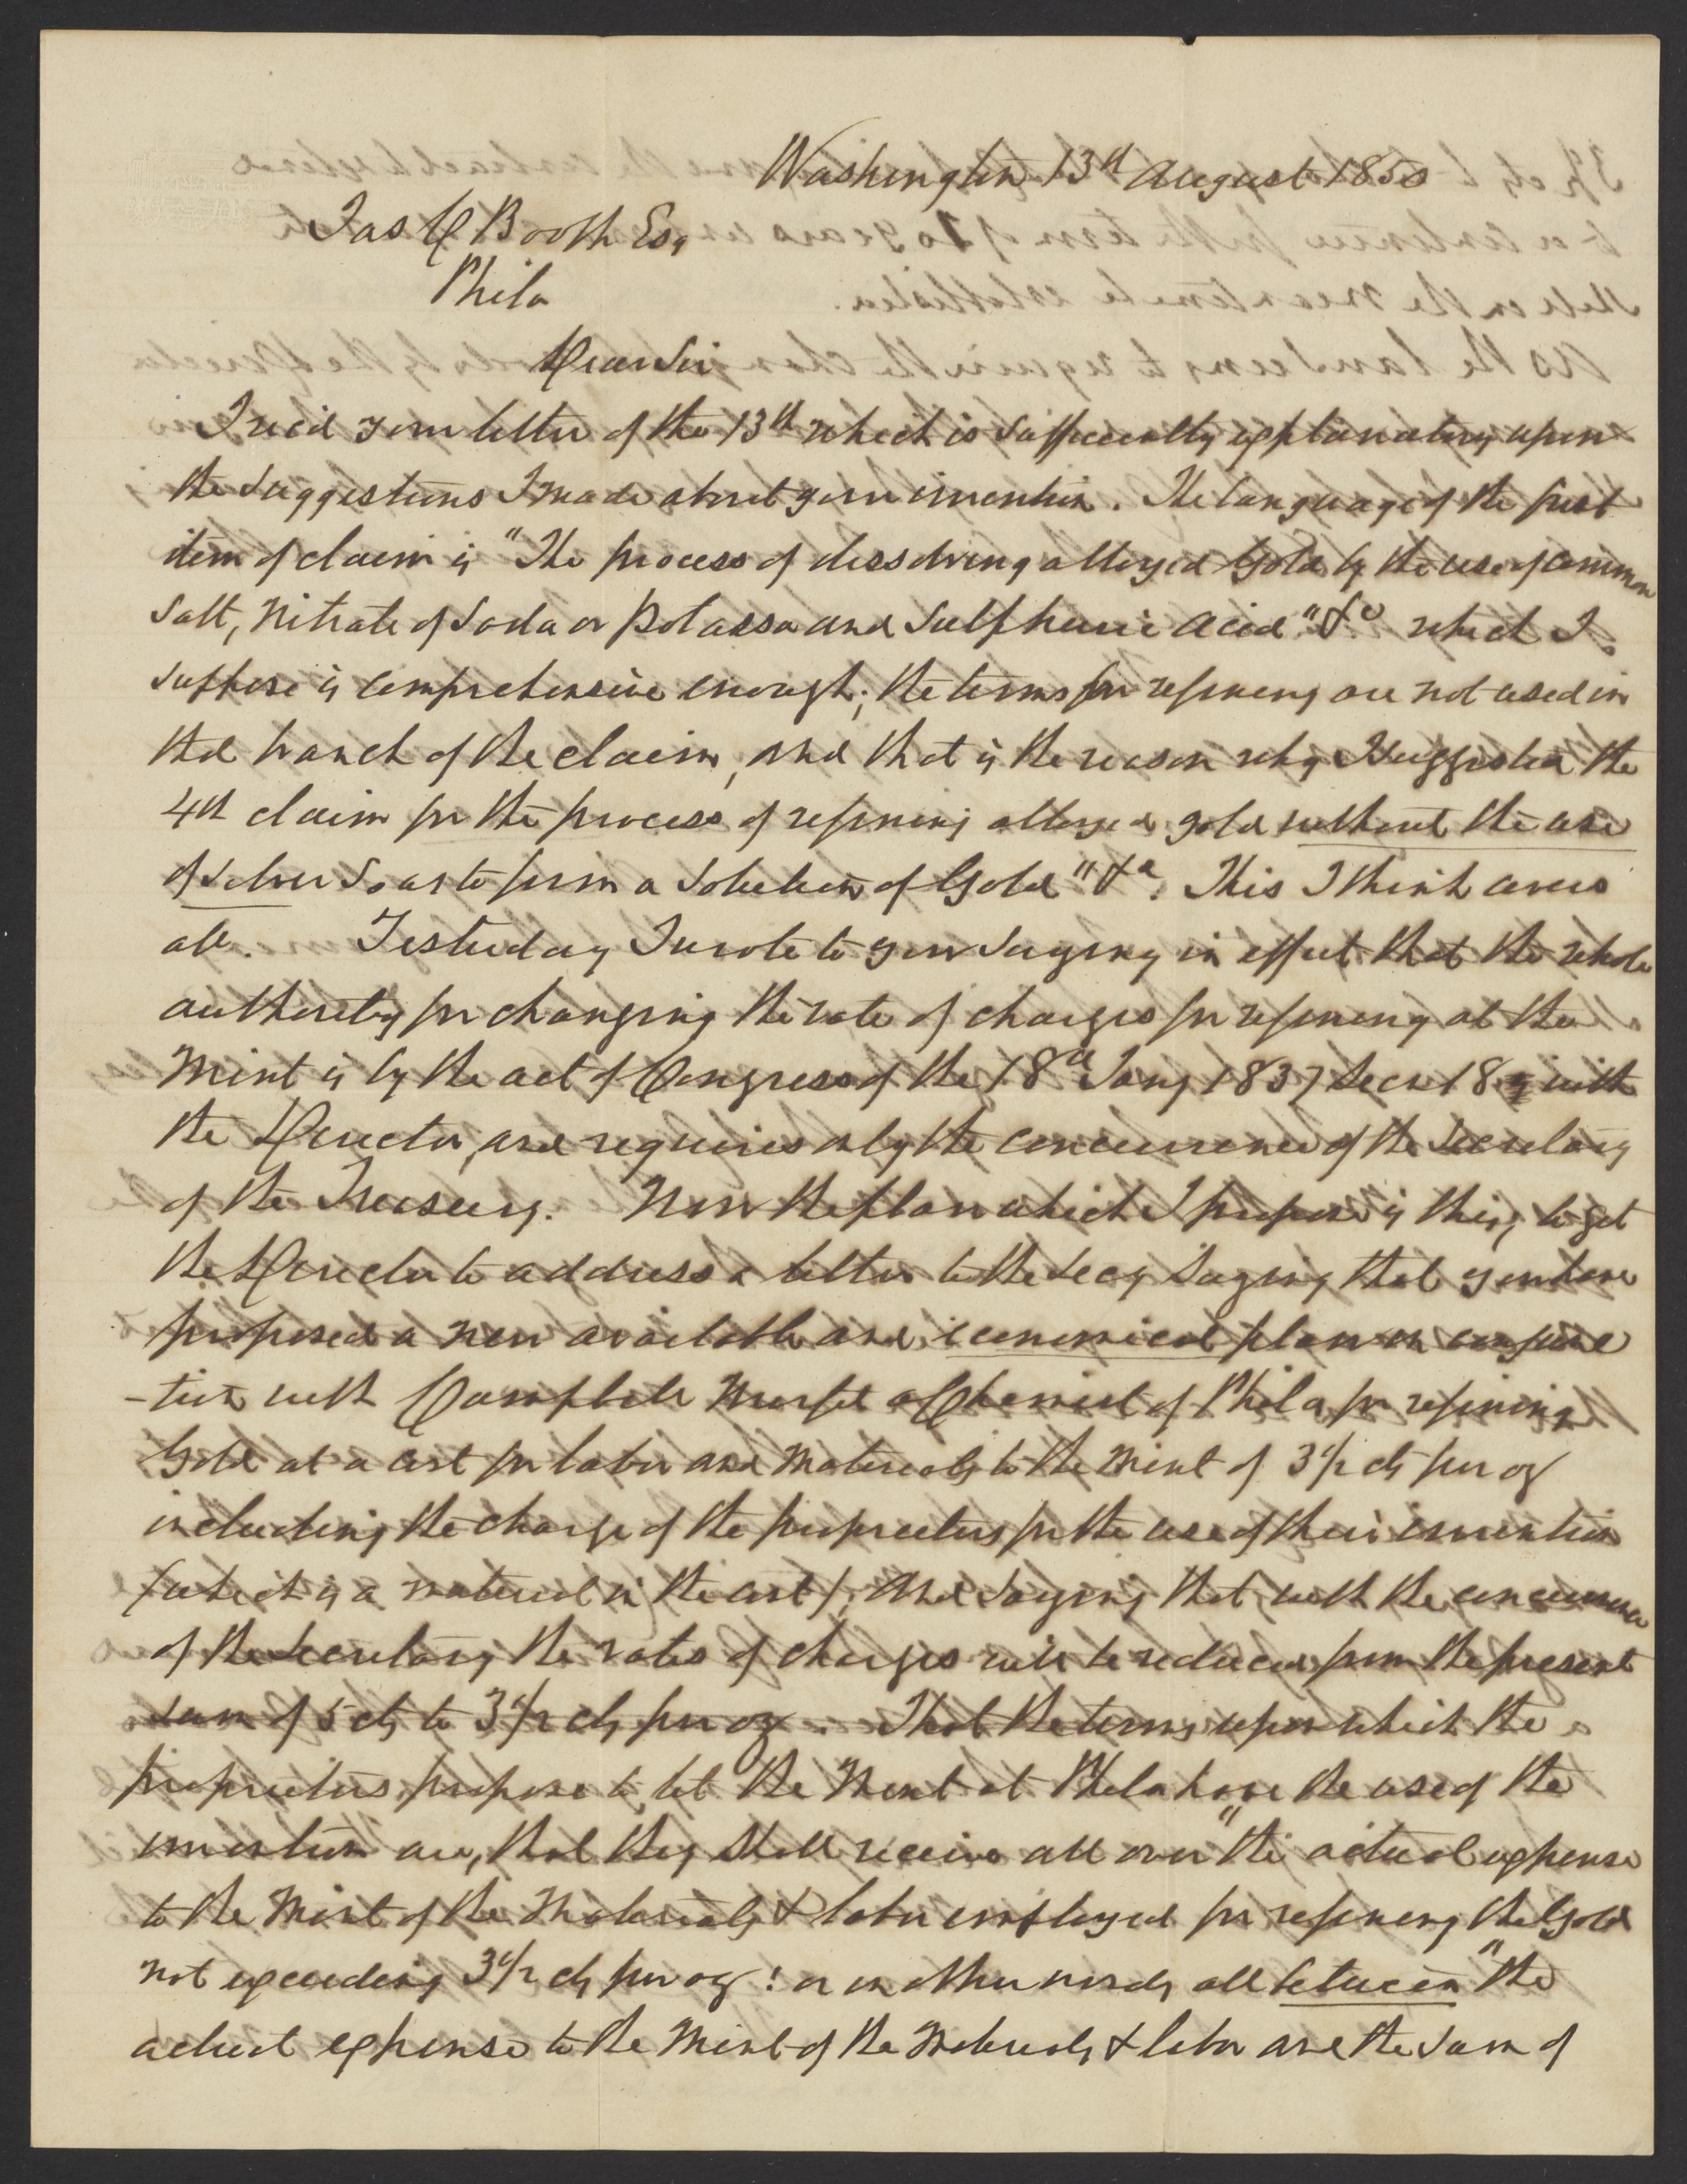 Washington 13th August 1850
Jas C Booth Esq
Phila
Dear Sir
I recd your letter of the 13th which is sufficiently explanatory upon
the suggestions I made about your invention. The language of the first
item of claim is "The process of dissolving alloyed Gold by the use of common
Salt, Nitrate of Soda or Potassa and Sulphuric acid" &c which I
suppose is comprehensive enough; the terms for refining are not used in
that branch of the claim, and that is the reason why I suggested the
4th claim for the process of refining alloyed gold without the use
of silver so as to form a solution of Gold" &c. This I think covers
all. Yesterday I wrote to you saying in effect that the whole
authority for changing the rate of charges for refining at the
Mint is by the act of Congress of the 18th Jany 1837 Secn 18 with
the Director, and requires only the concurrence of the Secretary
of the Treasury. Now the plan which I propose is this, to get
the Director to address a letter to the Secy saying that you have
proposed a new available and economical plan in conjunc
-tion with Campbell Morfit a Chemist of Phila for refining
Gold at a cost for labor and materials to the Mint of 3 1/2 cts per oz
including the charge of the proprietors for the use of their invention
(which is a material in the cost); And saying that with the concurrence
of the Secretary the rates of charges will be reduced from the present
sum of 5 cts to 3 1/2 cts per oz. That the terms upon which the
proprietors propose to let the Mint at Phila have the use of the
invention are, that they shall receive all over "the actual expense
to the Mint of the Materials & labor employed for refining the Gold
not exceeding 3 1/2 cts per oz: or in other words all between "the
actual expense to the Mint of the Materials & labor and the sum of